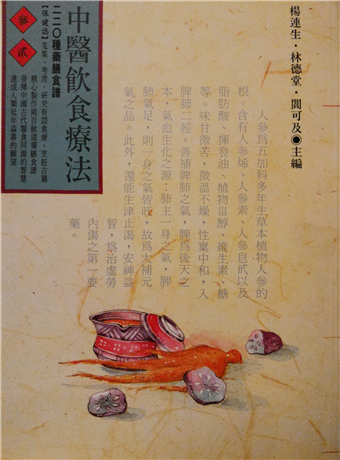 楊連生・林德堂・閻可及◉主編
中醫飲食療法
二二〇種藥膳食譜
【保健選】蒐集、考證、研究有關食療、烹飪古籍
精心製作兩百餘道藥膳食譜
發揮中國古代醫食同源的智慧
達成人類延年益壽的願望
參
貳
人參為五加科多年生草本植物人參的
根。含有人參烯、人參素、人參皂甙以及
脂肪酸、揮發油、植物甾醇、維生素、糖
等。味甘微苦，微溫不燥，性稟中和，入
脾肺二經。善補脾肺之氣，脾為後天之
本，氣血生化之源；肺主一身之氣，脾
肺氣足，則一身之氣皆旺，故為大補元
氣之品。此外，還能生津止渴，安神益
智，為治虛勞
內傷之第一要
藥。